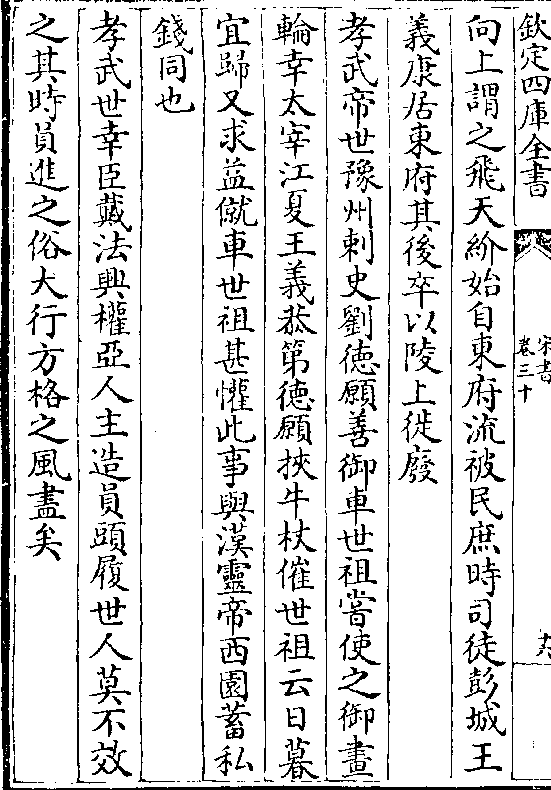 欽定四庫全書
宋書
卷三十
向上謂之飛天紒始自東府流被民庶時司徒彭城王
義康居東府其後卒以陵上徙廢
孝武帝世豫州刺史劉徳願善御車世祖嘗使之御畫
輪幸太宰江夏王義恭第徳願挾牛杖催世祖云日暮
宜歸又求益僦車世祖甚懽此事與漢靈帝西園蓄私
錢同也
孝武世幸臣戴法興權亞人主造員頭履世人莫不效
之其時員進之俗大行方格之風盡矣